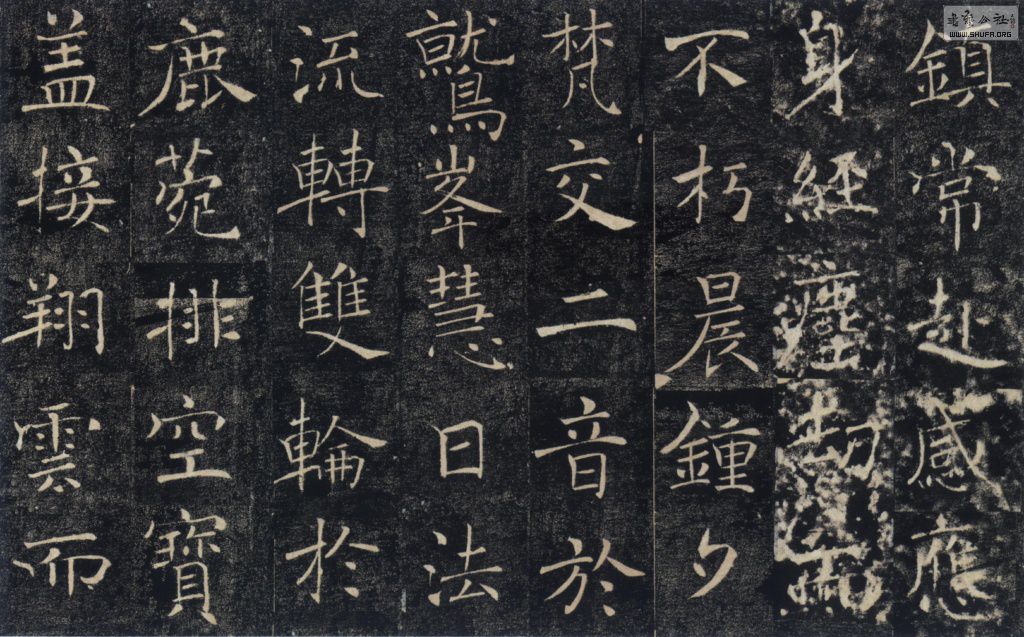 鎮常赴感應
身經塵劫而
不朽晨鍾夕
梵交二音於
鷲峯慧日法
流轉雙輪於
鹿菀排空寶
盖接翔雲而
書藝公社
WWW.SHUFA.ORG